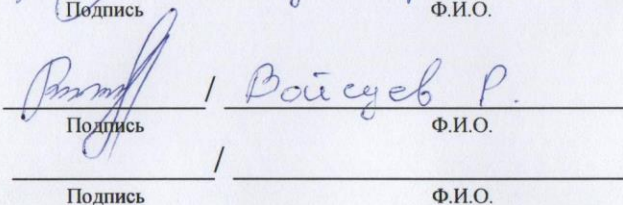 Подпись Ф.И.О.
/ Войсуев Р.
Подпись Ф.И.О.
/
Подпись Ф.И.О.